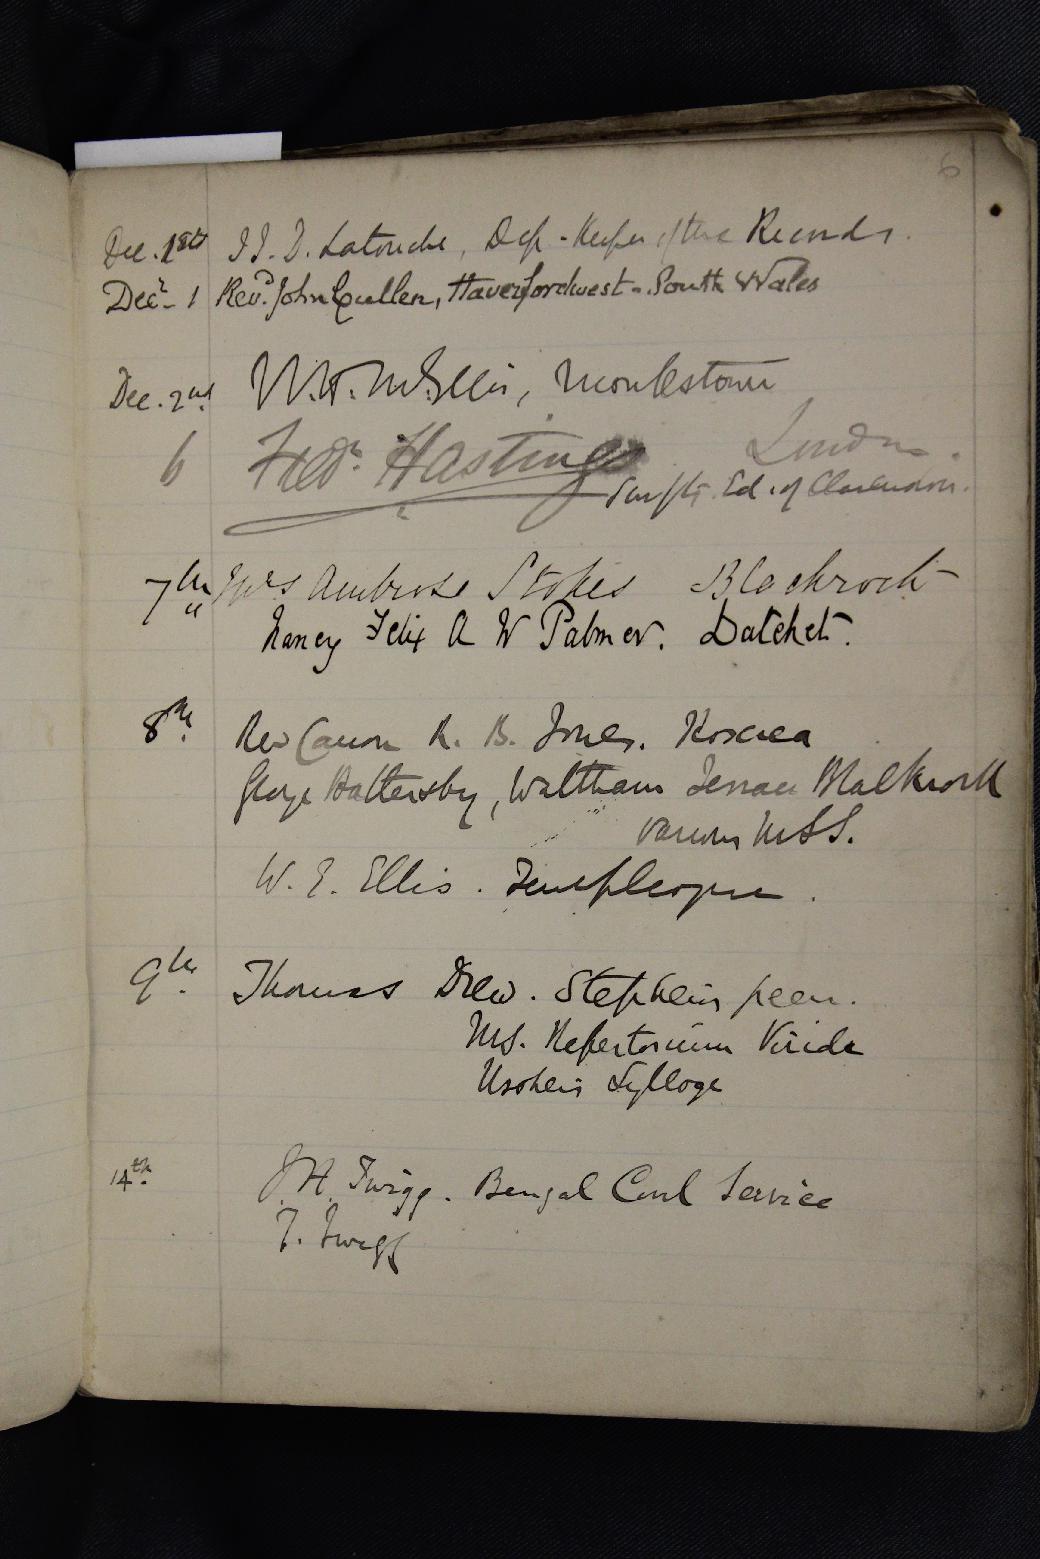 6
Dec. 1st J.J. D. Latouche, Dep-Keeper of the Records.
Decr. 1 Revd. John Cullen, Haverfordwest - South Wales
Dec. 2nd W.H. Ellis, Monkstown
6 Fredk. Hastings London.
Swift's Ed. of Clarendon.
7th Mrs Ambrose Stokes Blackrock
" Nancy Felix A W Palmer. Datchet.
8th. Rev Canon R. B. Jones. Roscrea
George Hattersby, Waltham Terrace Blackrock
various MSS.
W. E. Ellis. Templeogue.
9th. Thomas Drew. Stephens green.
MS. Repertorium Viride
Usshers Sylloge
14th. J.H. Twigg. Bengal Civil Service
T. Twigg